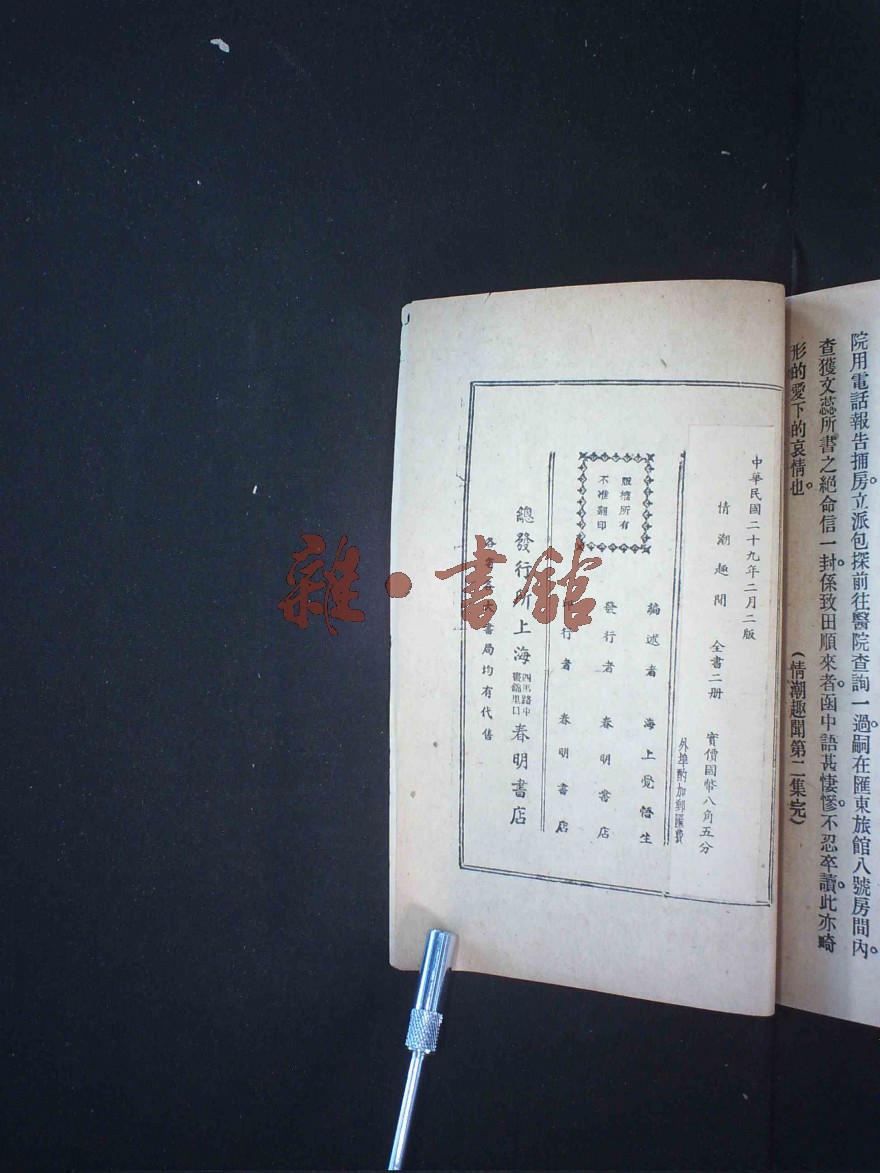 院用電話報告捕房。立派包探前往醫院查詢一過。嗣在匯東旅館八號房間內。
查獲文蕊所書之絕命信一封。係致田順來者。函中語甚悽慘。不忍卒讀。此亦畸
形的愛下的哀情也。
(情潮趣聞第二集完)
中華民國二十九年二月二版
情潮趣聞 全書二册
實價國幣八角五分
外埠酌加郵匯費
編述者 海上覺悟生
發行者 春明書店
印行者 春明書店
版權所有
不准翻印
總發行所上海四馬路中晝錦里口春明書店
各省各大書局均有代售
雜·書館